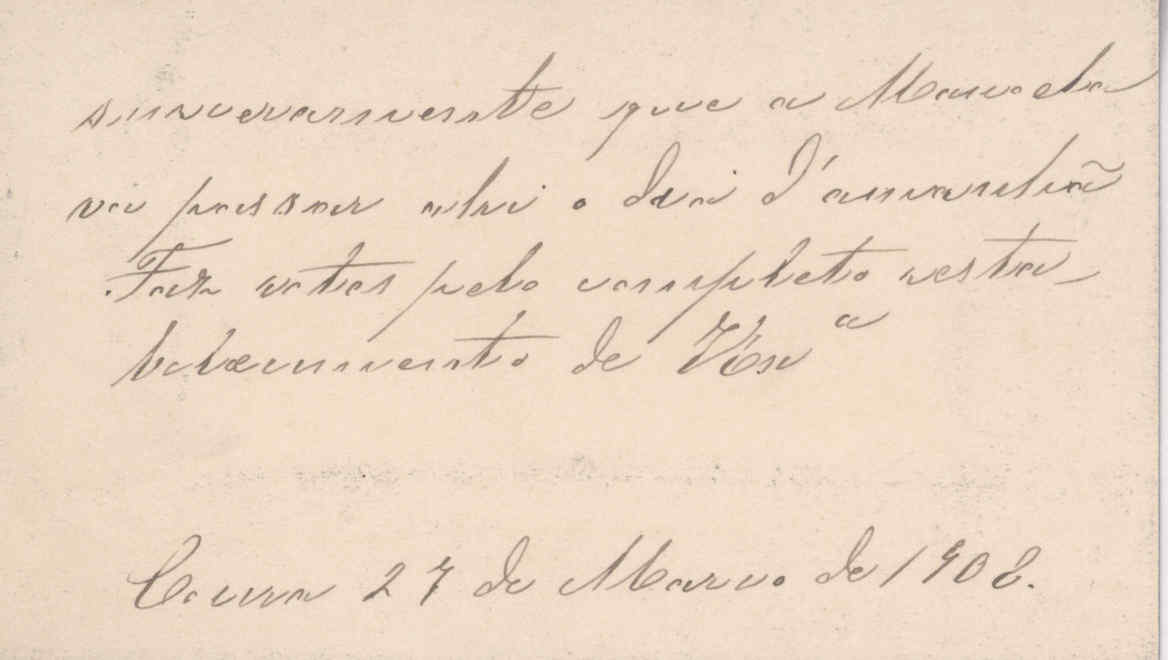 sinceramente que a Manoela
vá passar ahi o dia d'amanhã
Faz votos pelo completo resta-
belecimento de V. Ex.ª
27 de Março de 1908.